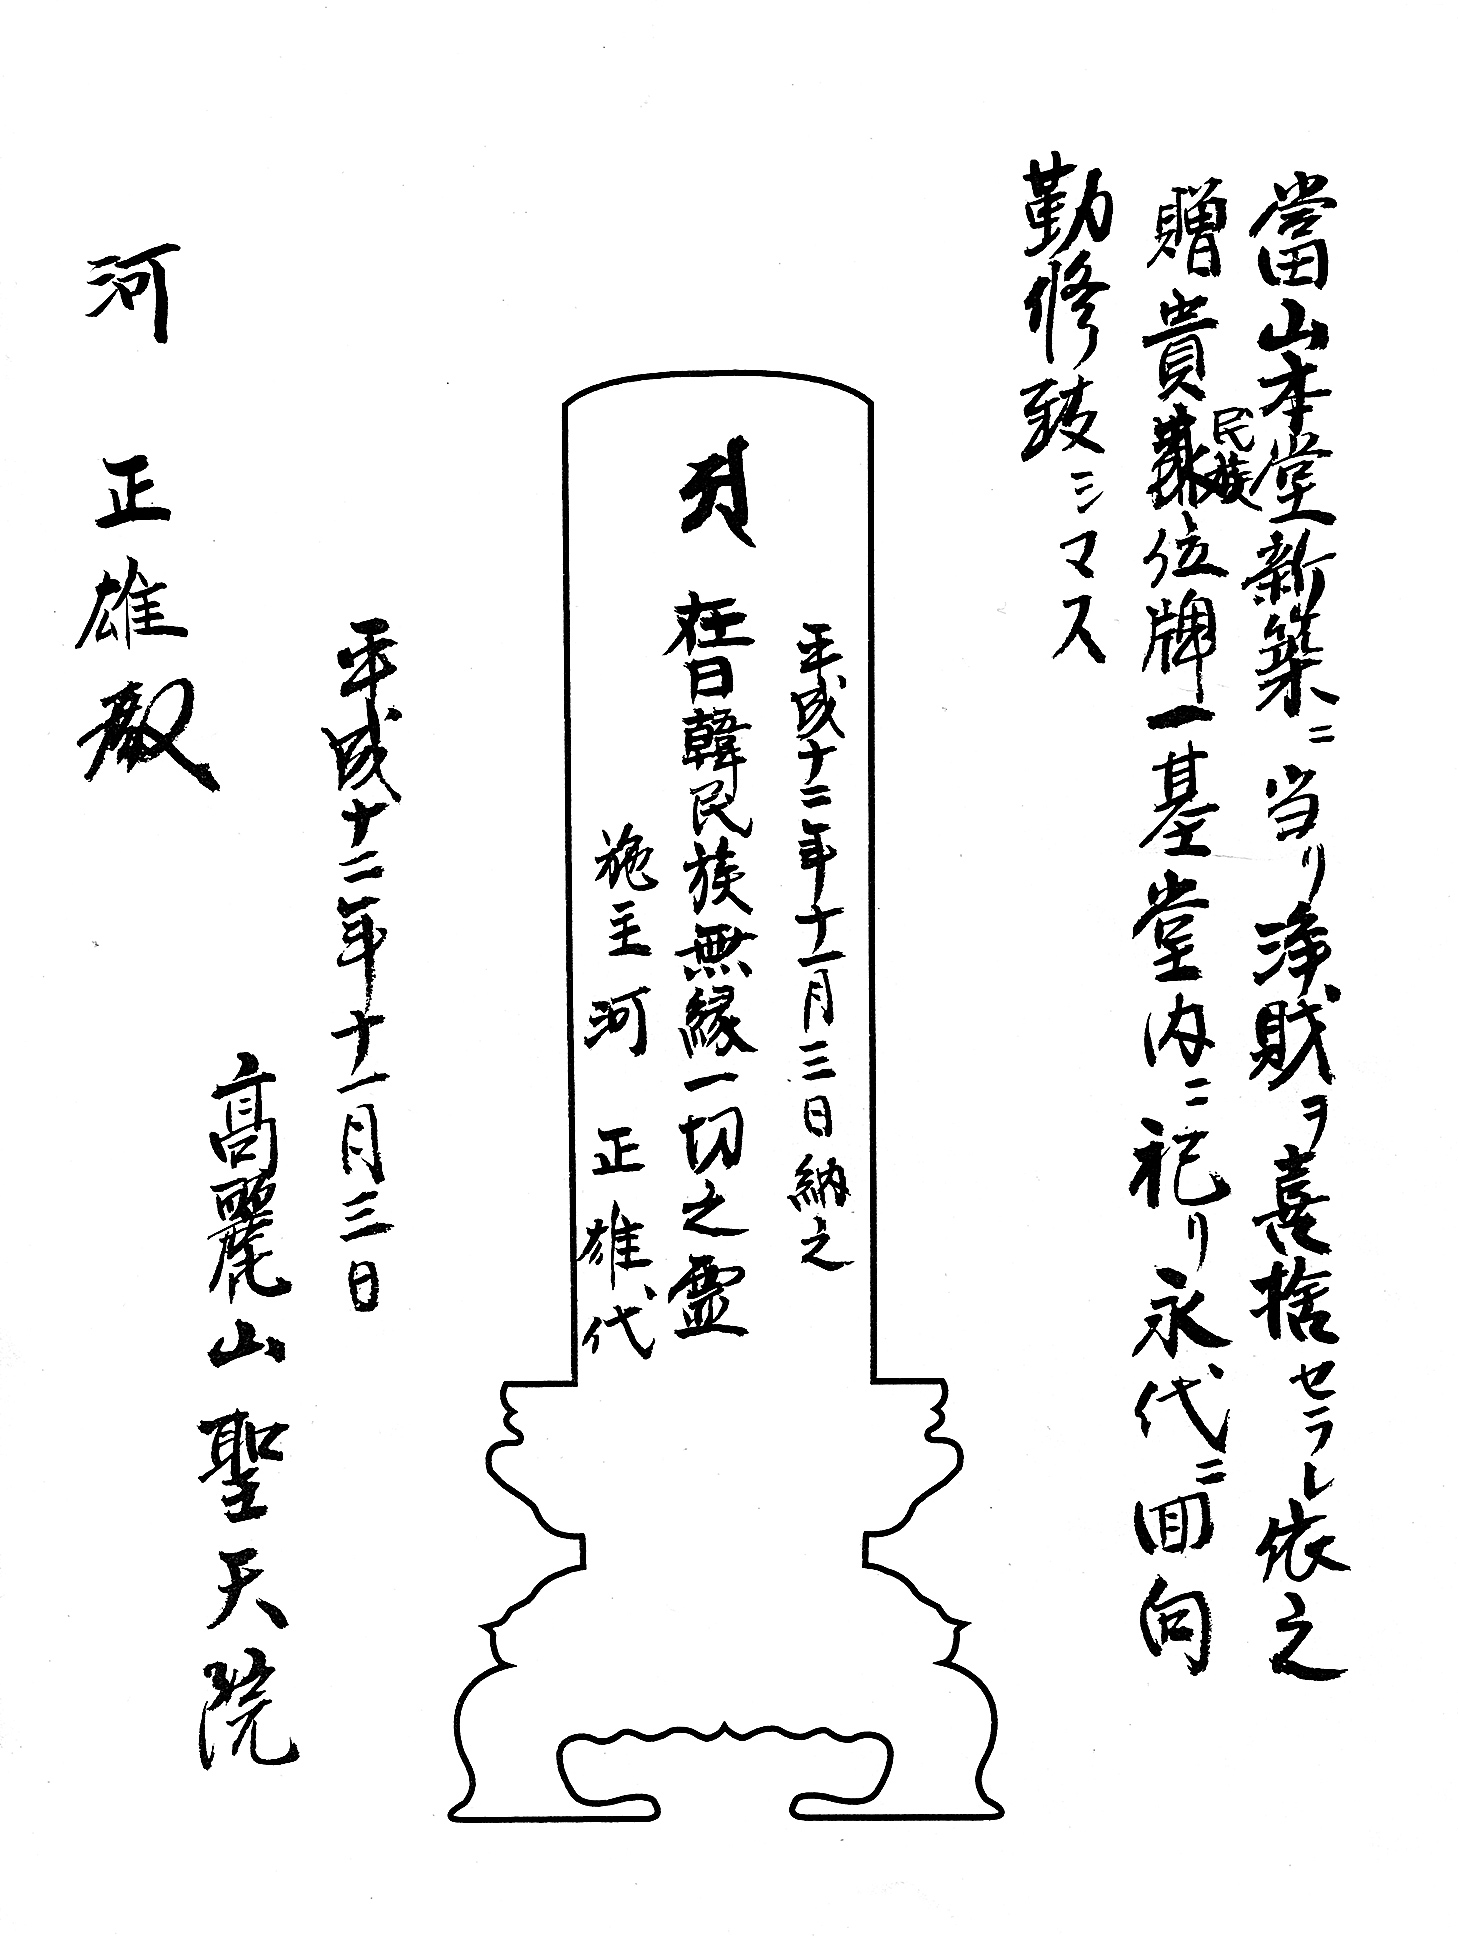 當山本堂新築ニ当リ浄財ヲ喜捨セラレ依之
贈貴民族位牌一基堂内ニ祀リ永代ニ回向
勤修致シマス
平成十二年十一月三日納之
在日韓民族無縁一切之霊
施主河 正雄代
平成十二年十一月三日
高麗山聖天院
河 正雄殿